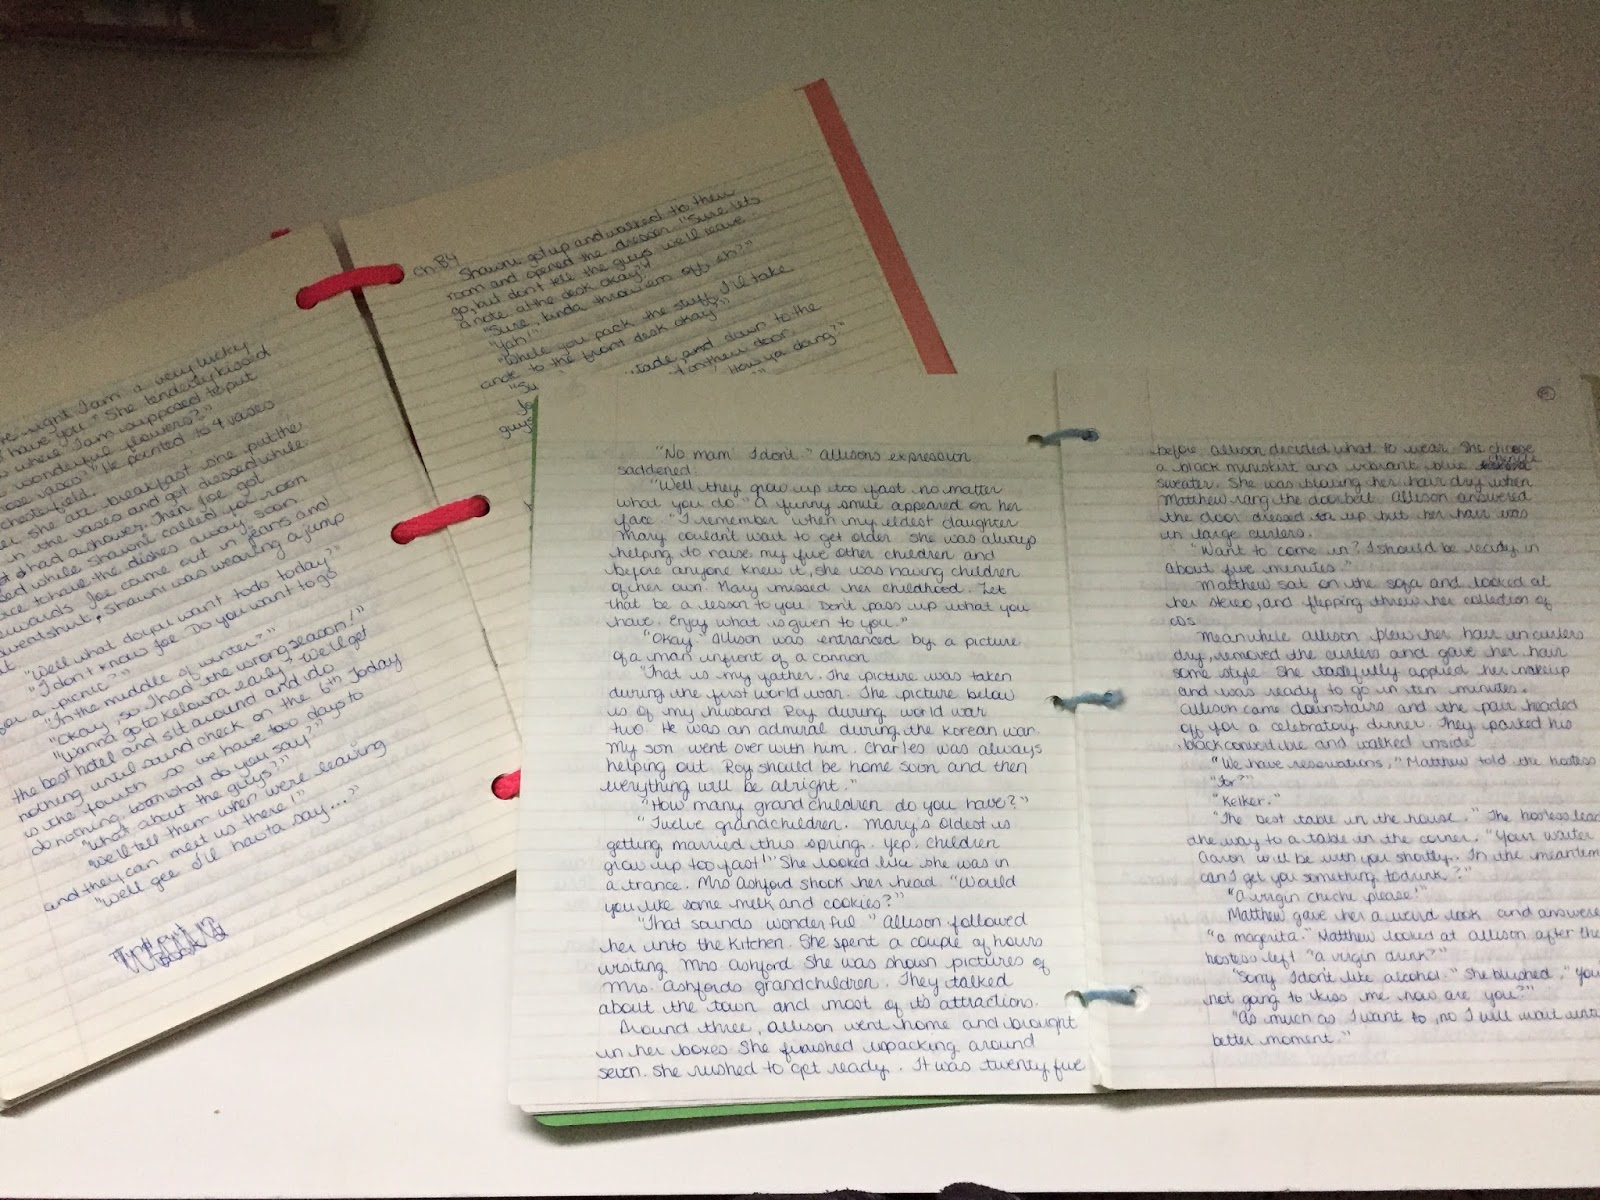 right I am a very lucky
have you" She tenderly kissed
where I am supposed to put
wonderful flowers?"
vases?" He pointed to 4 vases
chesterfield.
she ate breakfast she put the
in the vases and got dressed while
had a shower. Then Joe got
while Shawni called for room
to have the dishes away. Soon
Joe came out in jeans and
sweatshirt, Shawni was wearing a jump
"Well what do you want to do today?"
"I don't know Joe. Do you want to go
for a picnic?"
"In the middle of winter?"
"Okay, so I had the wrong season!"
"Wanna go to Kelowna early? We'll get
the best hotel and sit around and do
nothing until sound check on the 6th. Today
is the fourth so we have two days to
do nothing. What do you say?"
"What about the guys?"
"We'll tell them when were leaving
and they can meet us there!"
"Well gee I'll havta say...."
Book 2
Ch. 84
Shawni got up and walked to their
room and opened the dresser. "Sure lets
go, but don't tell the guys we'll leave
a note at the desk okay?"
"Sure, kinda throw'em off eh?"
"Yah!"
"While you pack the stuff, I'll take
a note to the front desk okay?"
and down to the
on their door.
How ya doing?"
guys
"No mam I don't." Allisons expression
saddened.
"Well they grow up too fast no matter
what you do." A funny smile appeared on her
face. "I remember when my eldest daughter
Mary couldn't wait to get older. She was always
helping to raise my five other children and
before anyone knew it, she was having children
of her own. Mary missed her childhood. Let
that be a lesson to you. Don't pass up what you
have. Enjoy what is given to you."
"Okay." Allison was entranced by a picture
of a man infront of a cannon.
"That is my father. The picture was taken
during the first world war. The picture below
is of my husband Roy during world war
two. He was an admiral during the Korean war.
My son went over with him. Charles was always
helping out. Roy should be home soon and then
everything will be alright."
"How many grandchildren do you have?"
"Twelve grandchildren. Mary's oldest is
getting married this spring. Yep, children
grow up too fast!" She looked like she was in
a trance. Mrs Ashford shook her head. "Would
you like some melk and cookies?"
"That sounds wonderful." Allison followed
her into the kitchen. She spent a couple of hours
visiting Mrs Ashford. She was shown pictures of
Mrs. Ashfords grandchildren. They talked
about the town and most of its attractions.
Around three, Allison went home and brought
in her boxes. She finished unpacking around
seven. She rushed to get ready. It was twenty five
before Allison decided what to wear. She choose
a black miniskirt and vibrant blue chinelle
sweater. She was blowing her hair dry when
Matthew rang the doorbell. Allison answered
the door dressed up but her hair was
in large curlers.
"Want to come in? I should be ready in
about five minutes."
Matthew sat on the sofa and looked at
her stereo, and flipping threw her collection of
cds.
Meanwhile Allison blew her hair in curlers
dry, removed the curlers and gave her hair
some style. She tastefully applied her makeup
and was ready to go in ten minutes.
Allison came downstairs and the pair headed
off for a celebratory dinner. They parked his
black convertible and walked inside.
"We have reservations," Matthew told the hostess
"for?"
"Kelker."
"The best table in the house." The hostess lead
the way to a table in the corner. "Your waiter
Aaron will be with you shortly. In the meantime
can I get you something to drink?"
"A virgin chiche please!"
Matthew gave her a weird look and answered
"a magerita." Matthew looked at Allison after the
hostess left "a virgin drink?"
"Sorry I don't like alcohol." She blushed, "You
not going to kiss me now are you?"
"As much as I want to, no I will wait until
better moment."